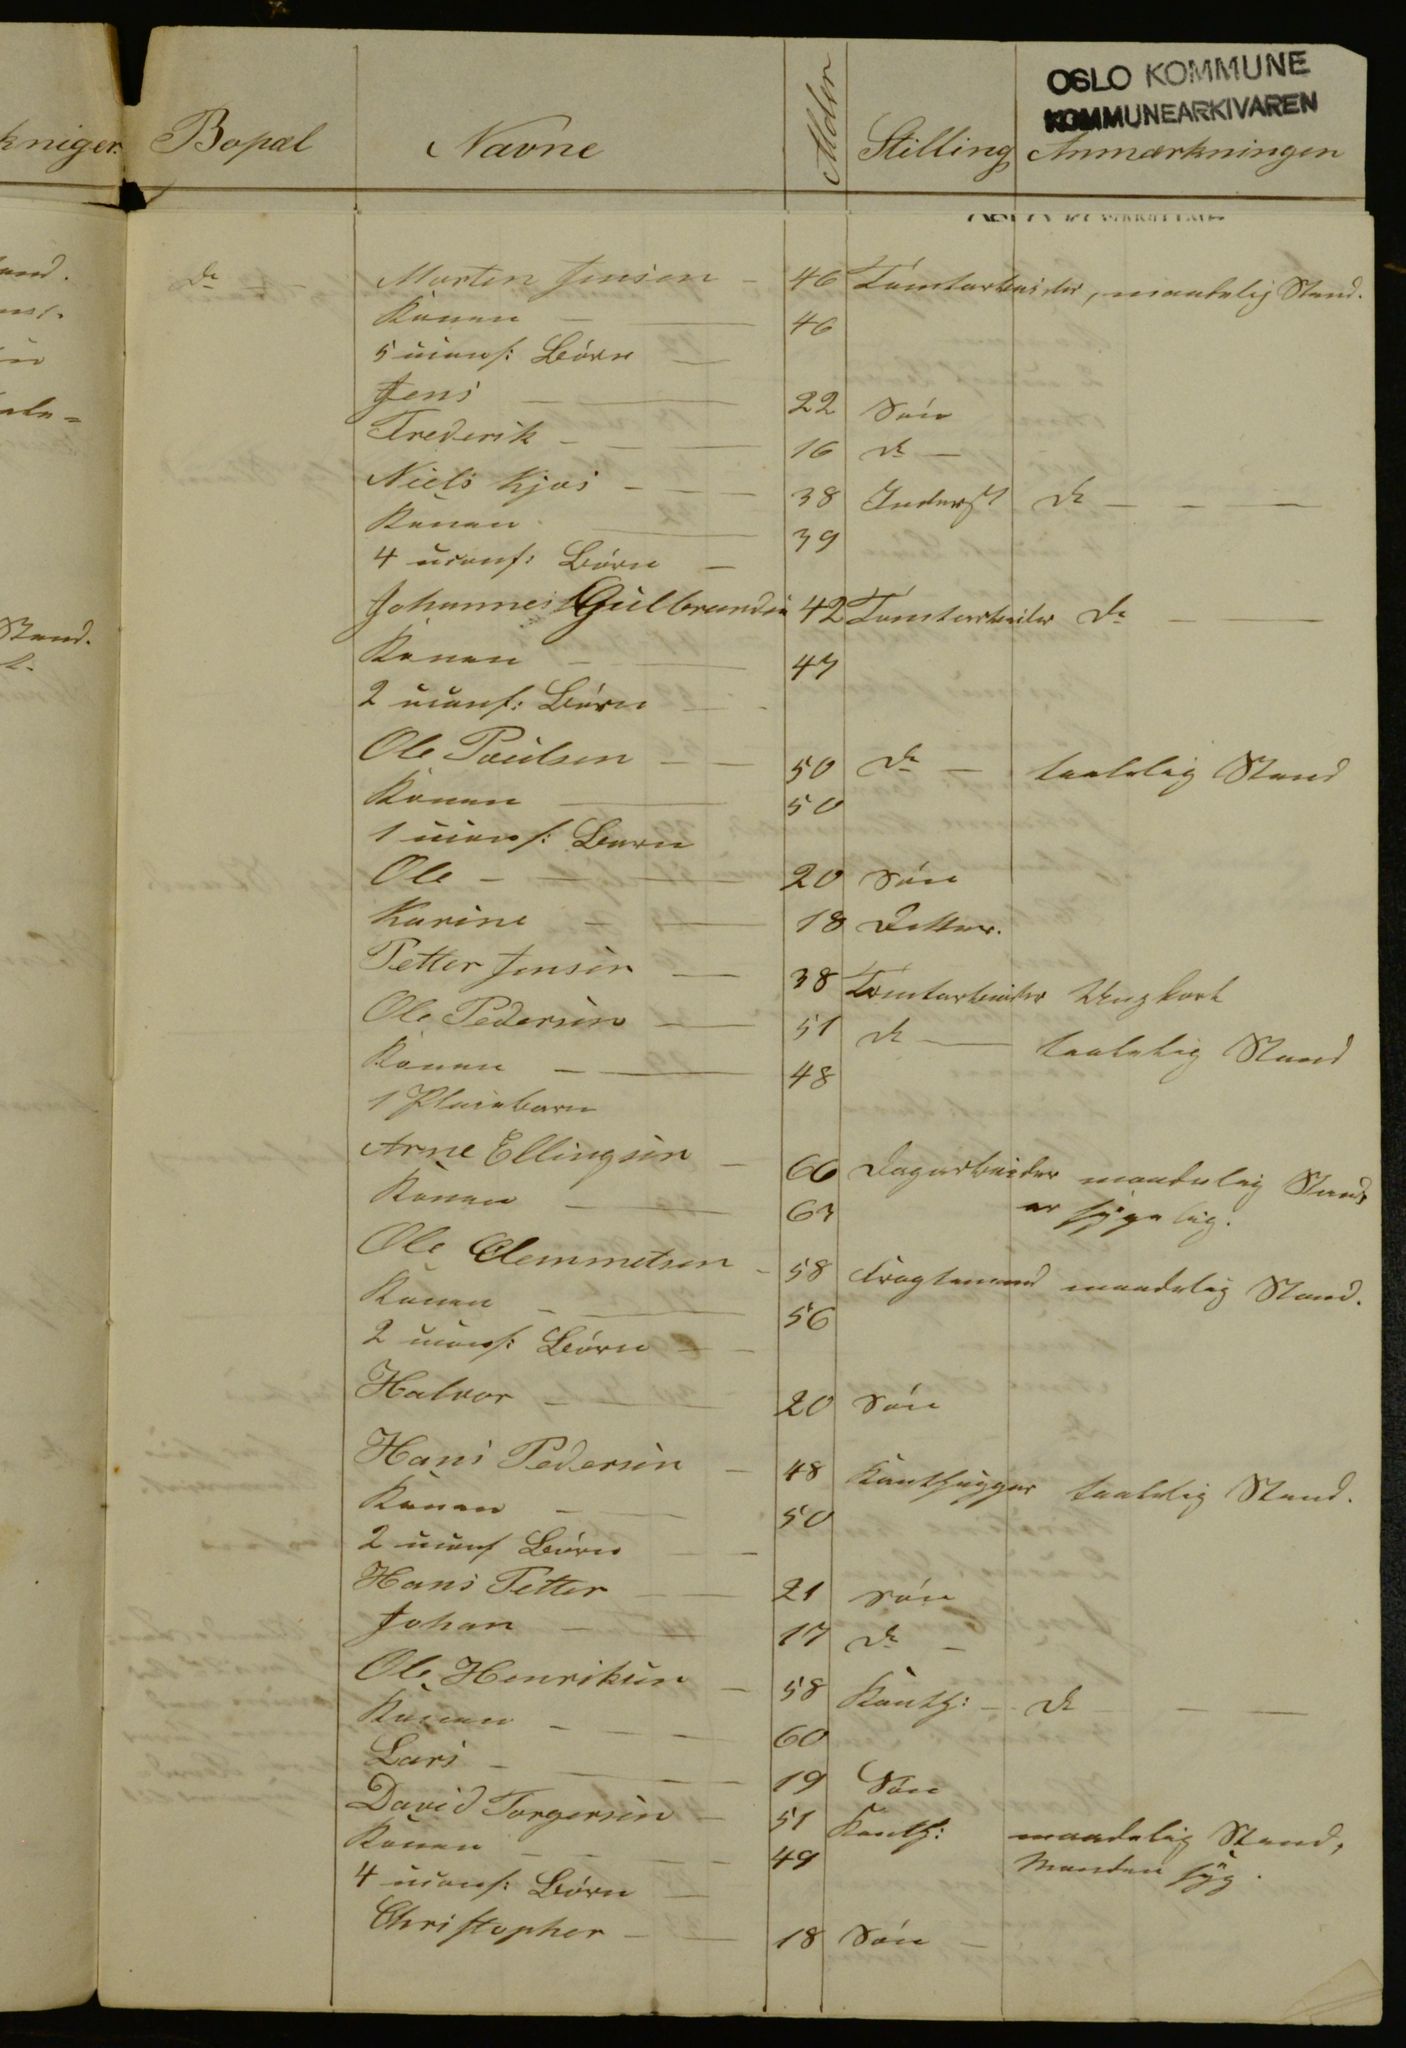 OSLO KOMMUNE
KOMMUNEARKIVAREN
kninger. Bopæl Navne Alder Stilling Anmærkningen
do Morten Jensen - 46 Tomtarbeider, maadelig Stand.
Konen - 46
5 uconf: Børn
Jens - 22 Søn
Frederik - 16 do -
Niels Kjøs - 38 Inderst do -
Konen - 39
4 uconf: Børn -
Johannes Gulbrandsen 42 Tomtarbeider do -
Konen - 47
2 uconf: Børn -
Ole Paulsen - 50 do - taalelig Stand
Konen - 50
1 uconf: Barn
Ole - 20 Søn
Karine - 18 Datter.
Petter Jensen - 38 Tomtarbeider Ungkarl
Ole Pedersen - 51 do - taalelig Stand
Konen - 48
1 Pleiebarn
Arne Ellingsen - 66 Dagarbeider maadelig Stand
Konen - 63 er sygelig.
Ole Clemmetsen - 58 Fragtemand maadelig Stand.
Konen - 56
2 uconf: Børn -
Halvor - 20 Søn
Hans Pedersen - 48 Kanthugger taalelig Stand.
Konen - 50
2 uconf Børn -
Hans Petter - 21 Søn
Johan - 17 do -
Ole Henriksen - 58 Kanth: - do -
Konen - 60
Lars - 19 Søn
David Torgersen - 51 Kanth: maadelig Stand,
Konen - 49 Manden syg.
4 uconf: Børn -
Christopher - 18 Søn -